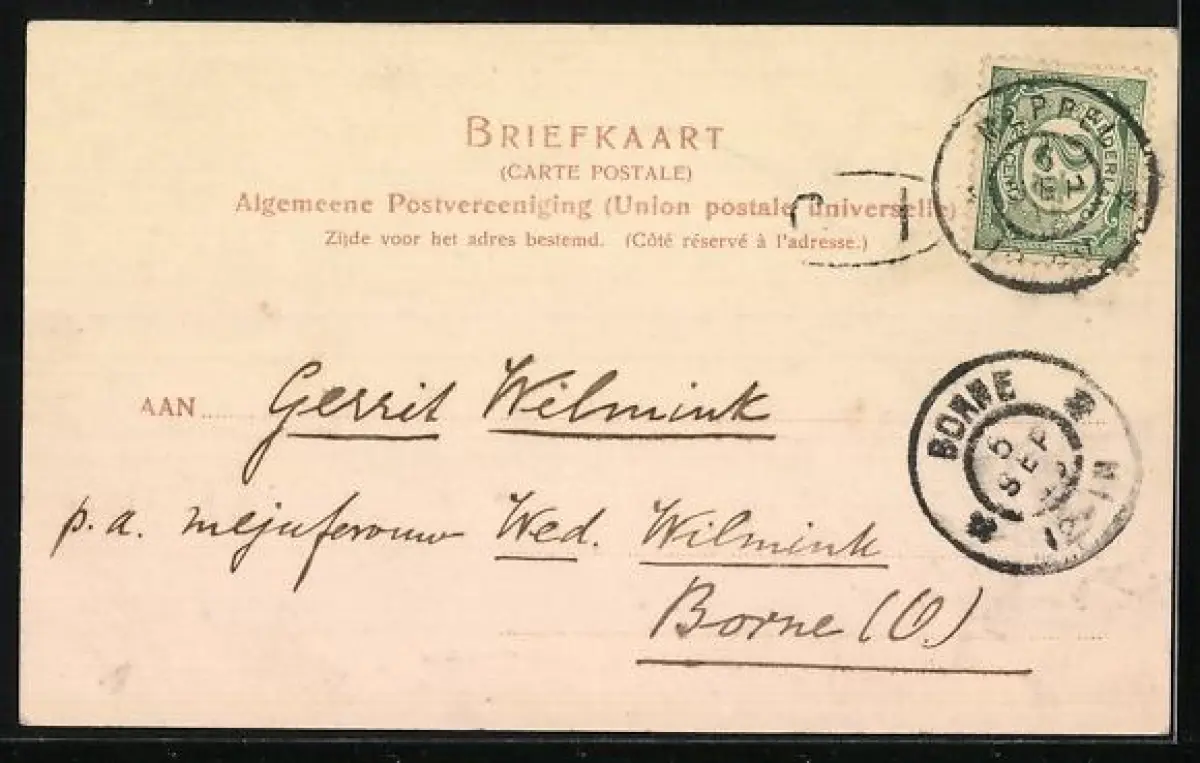 BRIEFKAART
(CARTE POSTALE)
Algemeene Postvereeniging (Union postale universelle)
Zijde voor het adres bestemd. (Côté réservé à l'adresse.)
AAN Gerrit Wilmink
p.a. mejuferouw Wed. Wilmink
Borne (O.)
MEPPEL
BORNE
5 SEP